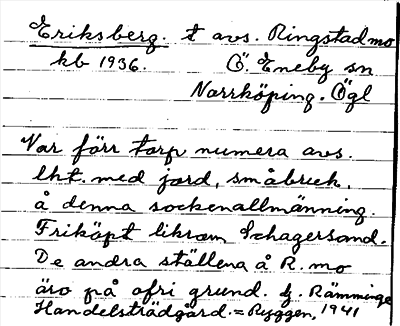 Eriksberg. t avs. Ringstadmo
kb 1936. Ö. Eneby sn
Norrköping. Ögl
Var förr torp numera avs.
lht. med jord, småbruk.
å denna sockenallmänning.
Friköpt liksom Schagersand.
De andra ställena å R. mo
äro på ofri grund. Rämminge
Handelsträdgård = Ryggen, 1941